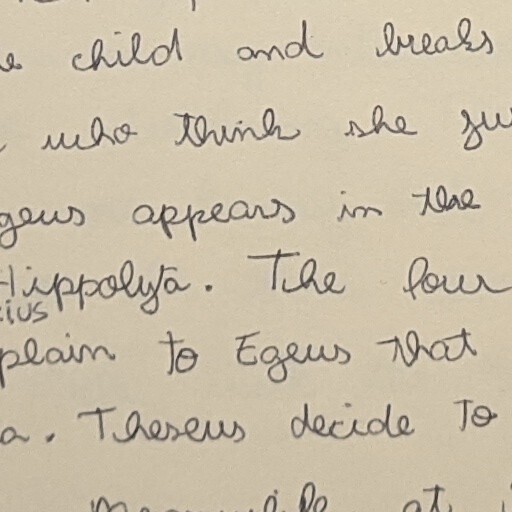 child and breaks
who think she
appears in the
Hippolyta. The four
to Egeus that
a. Theseus decide to
at